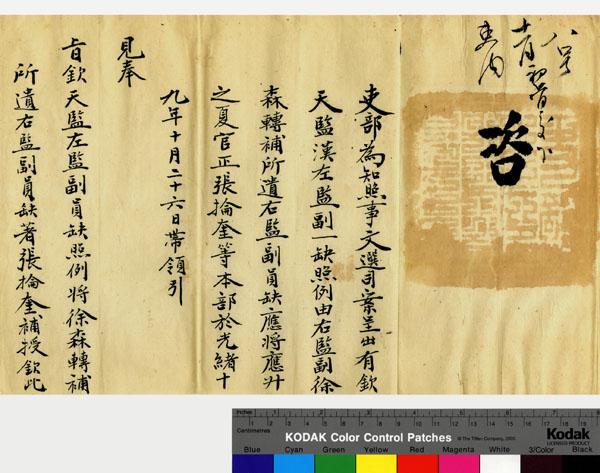 咨
吏部為知照事文選司案呈出有欽
天監漢左監副一缺照例由右監副徐
森轉補所遺右監副員缺應將應升
之夏官正張掄奎等本部於光緒十
九年十月二十六日帶領引
見奉
旨欽天監左監副員缺照例將徐森轉補
所遺右監副員缺著張掄奎補授欽此
Inches 1 2 3 4 5 6 7 8
Centimetres 1 2 3 4 5 6 7 8 9 10 11 12 13 14 15 16 17 18 19
KODAK Color Control Patches © The Tiffen Company, 2000 Kodak
LICENSED PRODUCT
Blue Cyan Green Yellow Red Magenta White 3/Color Black